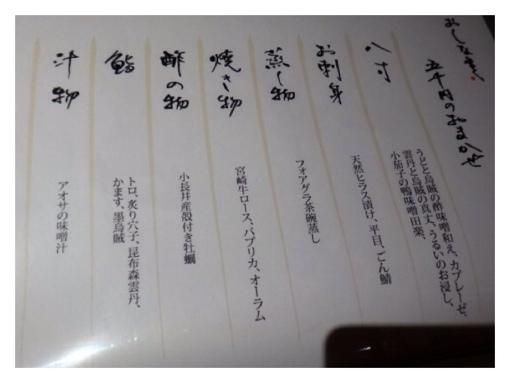 おしながき
五千円のおまかせ
八寸
うどと烏賊の酢味噌和え、カプレーゼ、
雲丹と烏賊の真丈、うるいのお浸し、
小茄子の鴨味噌田楽、
お刺身
天然ヒラス漬け、平目、ごん鯖
蒸し物
フォアグラ茶碗蒸し
焼き物
宮崎牛ロース、パプリカ、オーラム
酢の物
小長井産殻付き牡蠣
鮨
トロ、炙り穴子、昆布森雲丹、
かます、墨烏賊
汁物
アオサの味噌汁